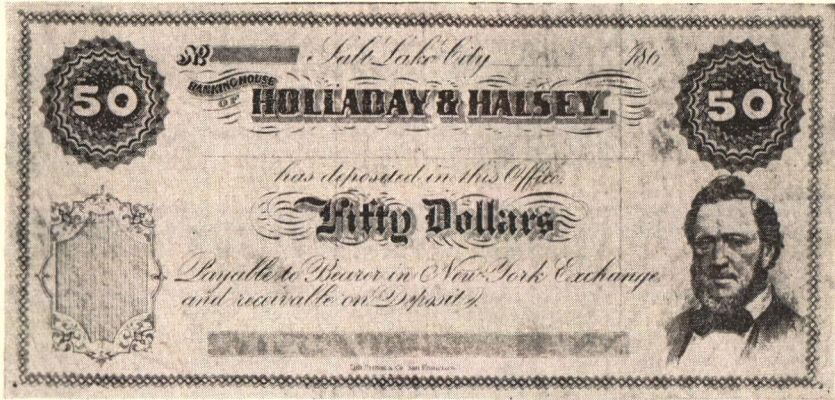 № Salt Lake City 186
50 BANKING HOUSE 50
OF HOLLADAY & HALSEY.
has deposited in this Office
Fifty Dollars
Payable to Bearer in New York Exchange
and receivable on Deposit
San Francisco